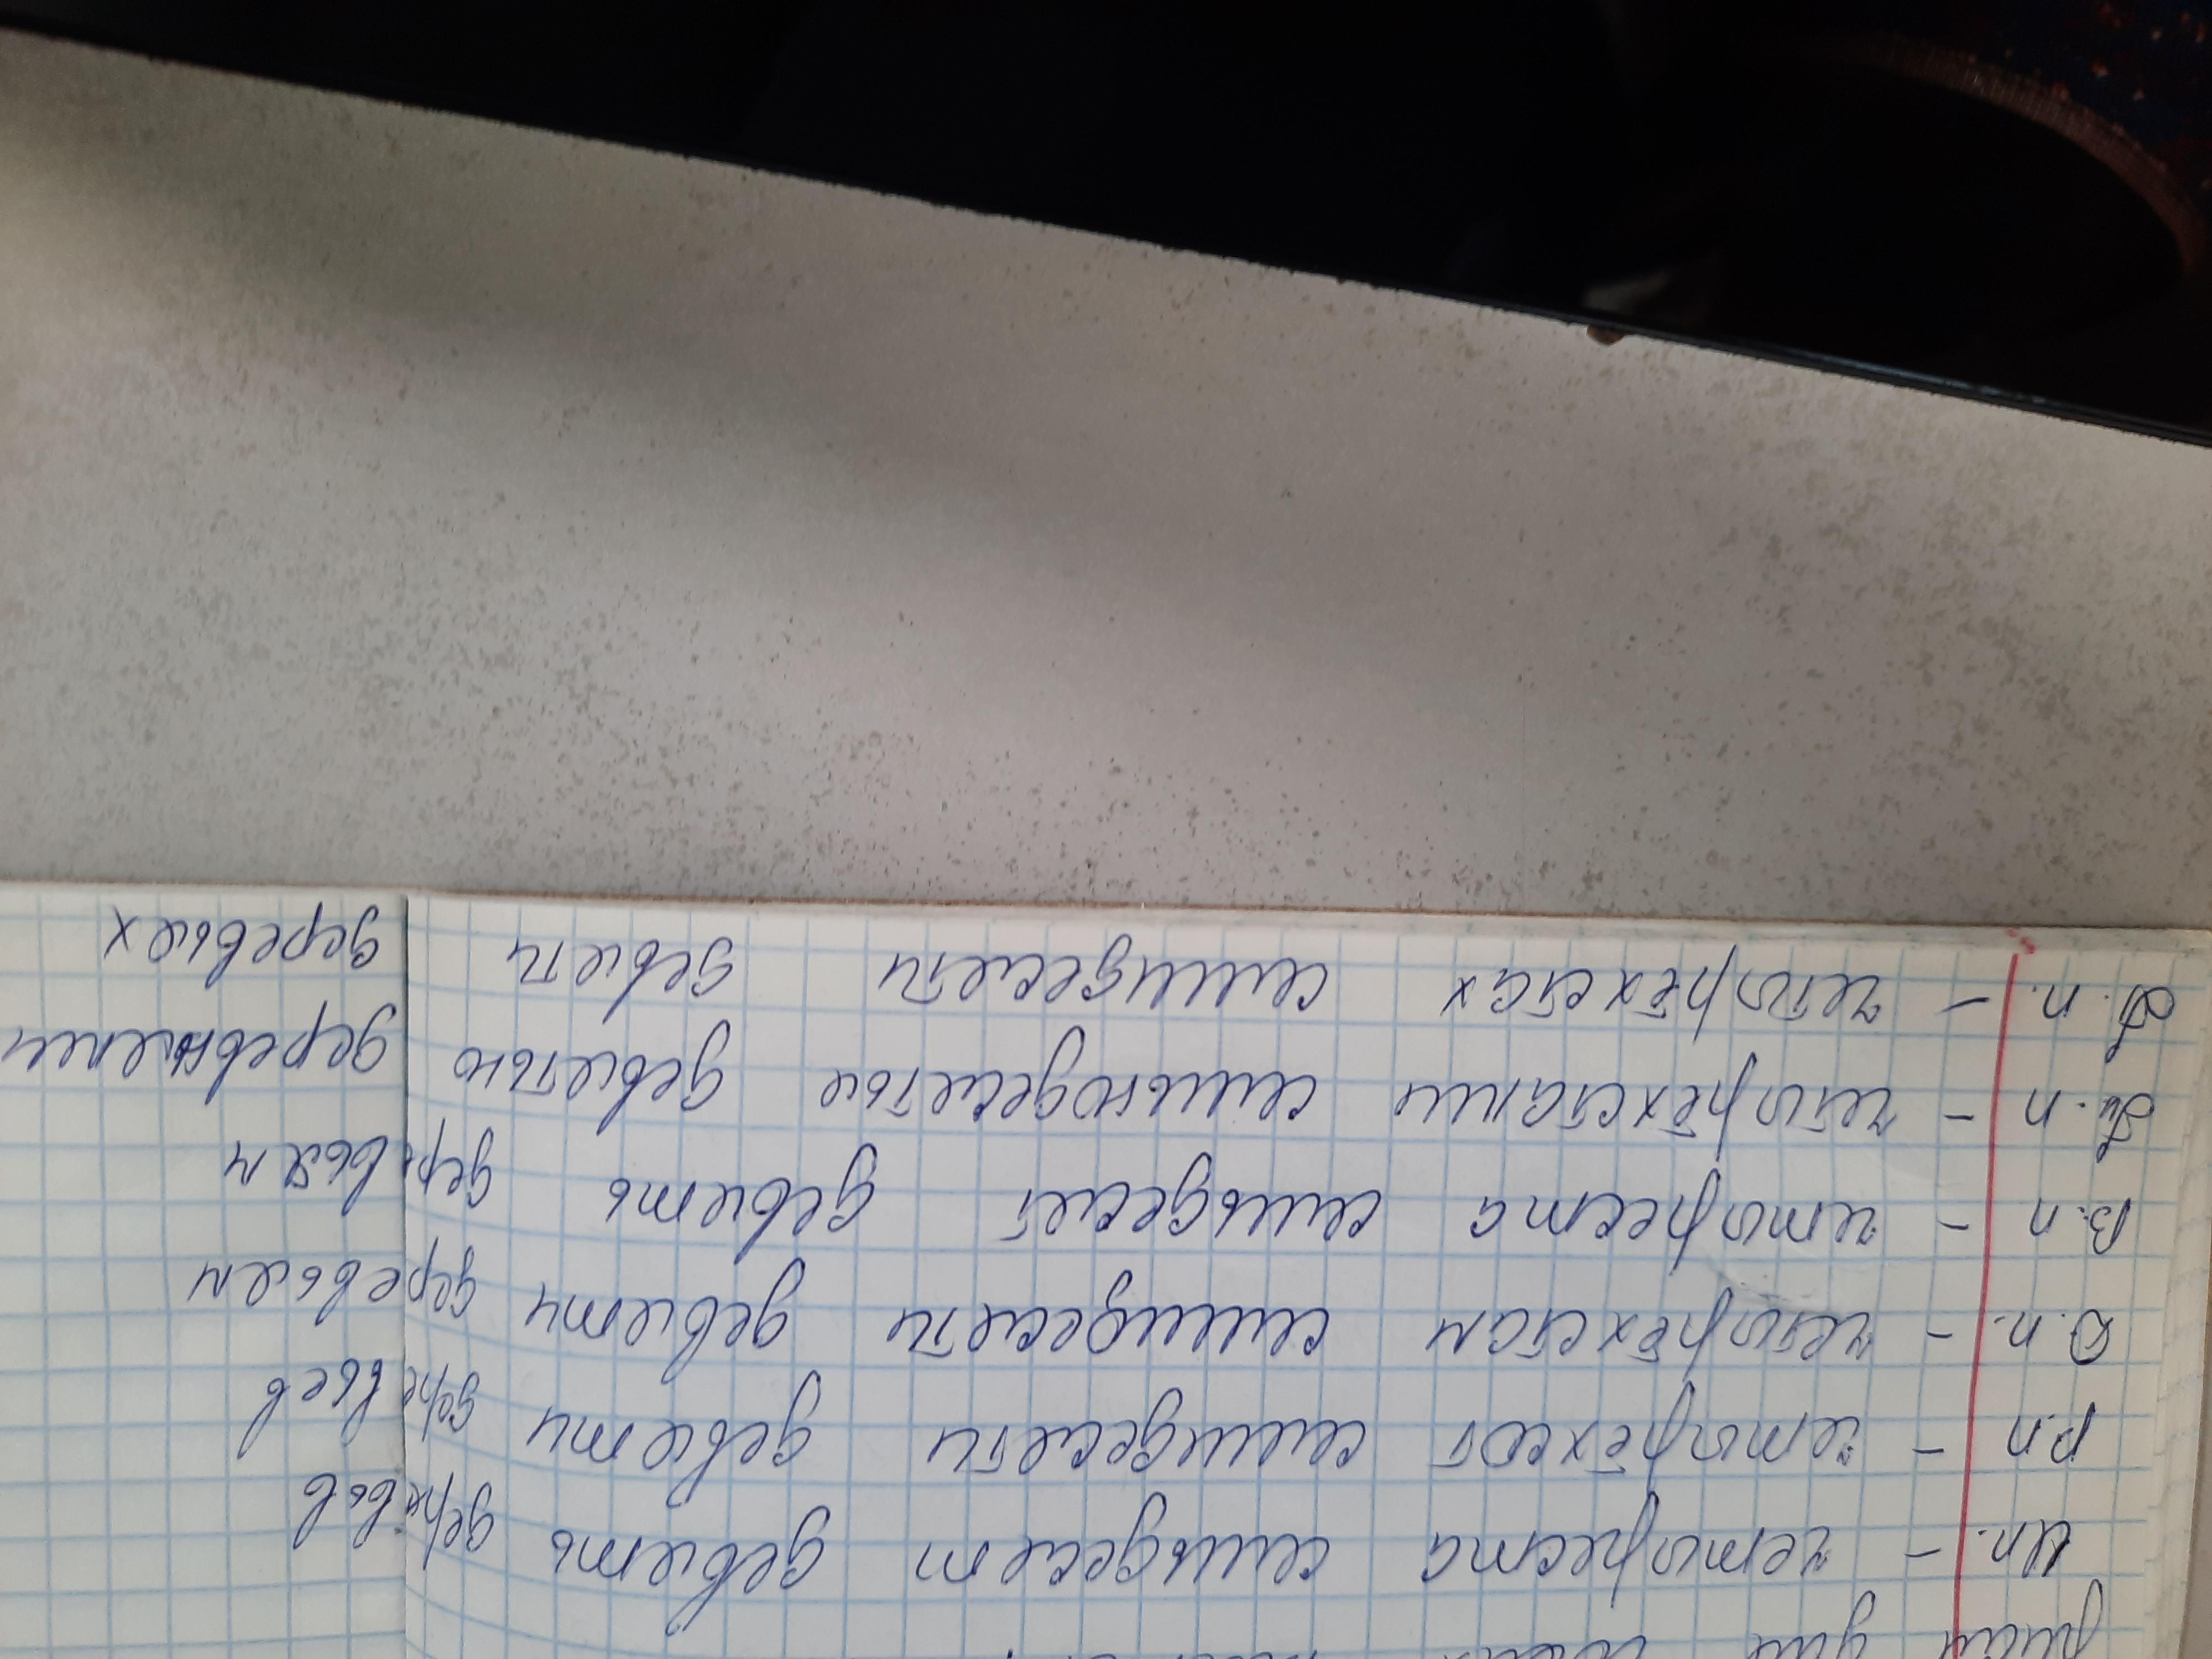 И.п. – четыреста семьдесят девять деревьев
Р.п – четырёхсот семидесяти девяти деревьев
Д.п. – четырёхстам семидесяти девяти деревьям
В.п – четыреста семьдесят девять деревьям
Тв.п – четырёхстами семьюдесятью девятью деревьями
П.п. – четырёхстах семидесяти девяти деревьях